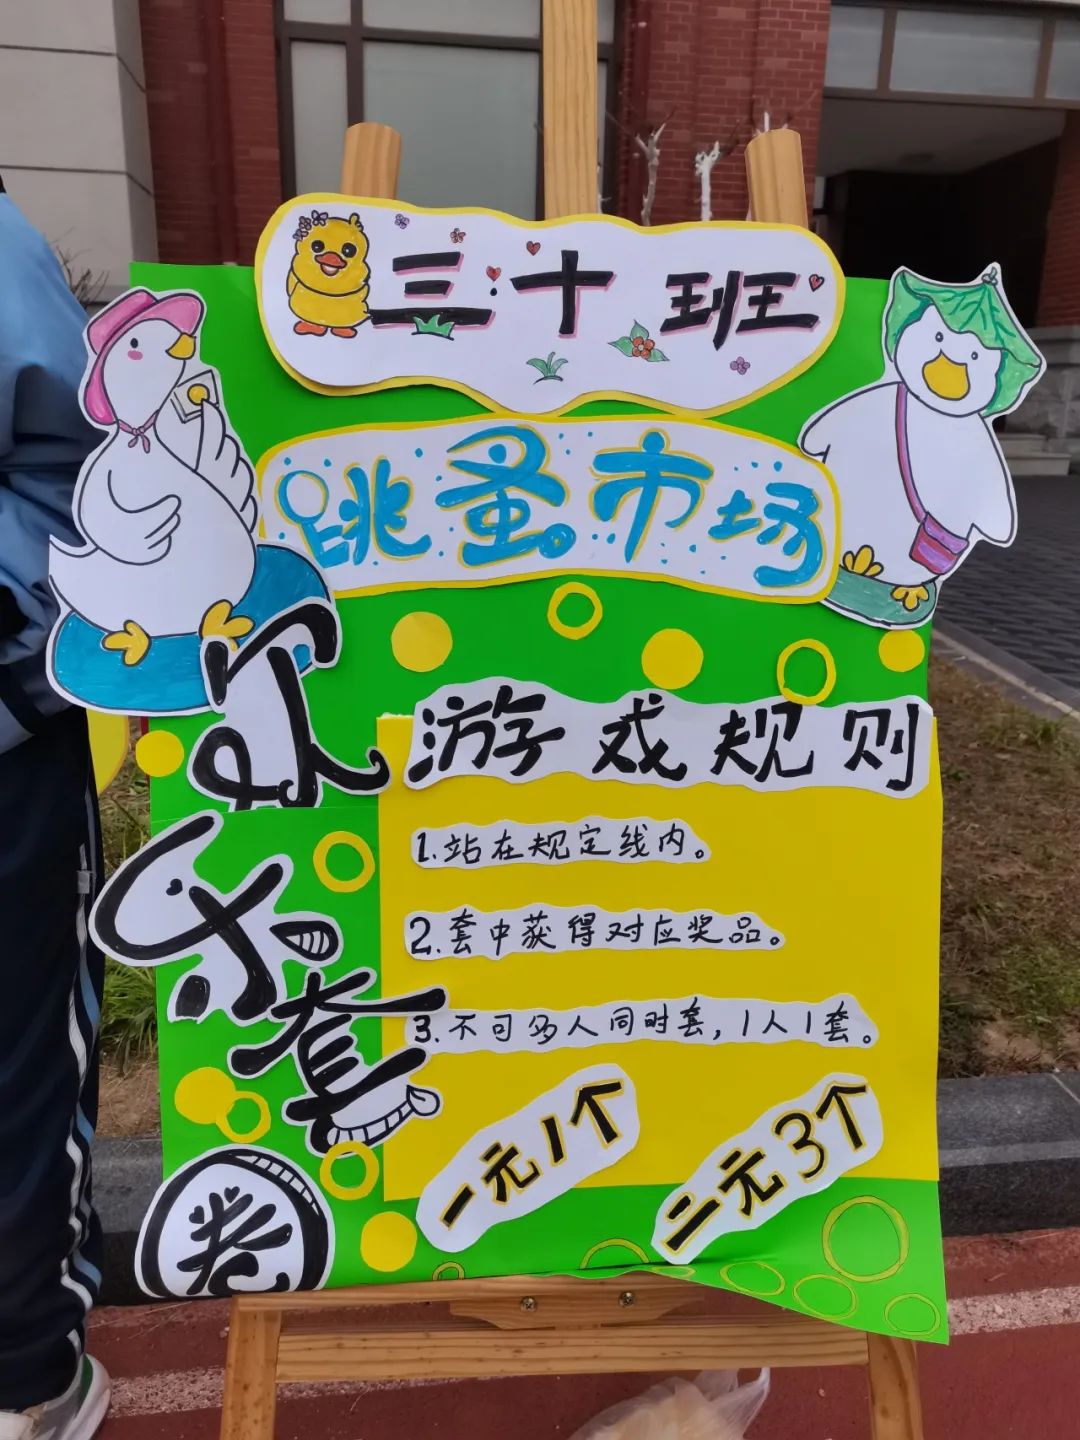 三.十班
跳蚤市场
欢乐套圈
游戏规则
1.站在规定线内。
2.套中获得对应奖品。
3.不可多人同时套，1人1套。
一元1个
二元3个